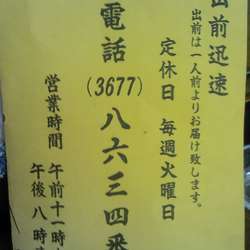 出前迅速
出前は一人前よりお届け致します。
定休日 毎週火曜日
電話(3677)八六三四番
営業時間 午前十一時
午後八時